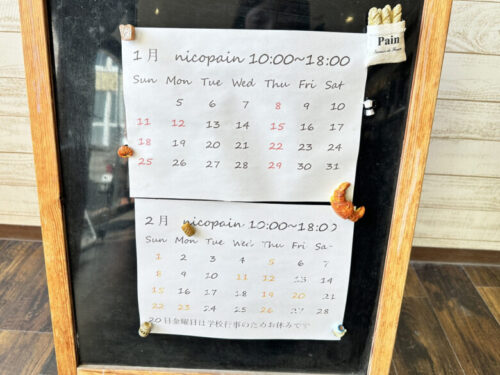 1月 nicopain 10:00~18:00
Sun Mon Tue Wed Thu Fri Sat
5 6 7 8 9 10
11 12 13 14 15 16 17
18 19 20 21 22 23 24
25 26 27 28 29 30 31
Pain
2月 nicopain 10:00~18:00
Sun Mon Tue Wed Thu Fri Sat
1 2 3 4 5 6 7
8 9 10 11 12 13 14
15 16 17 18 19 20 21
22 23 24 25 26 27 28
20日金曜日は学校行事のためお休みです